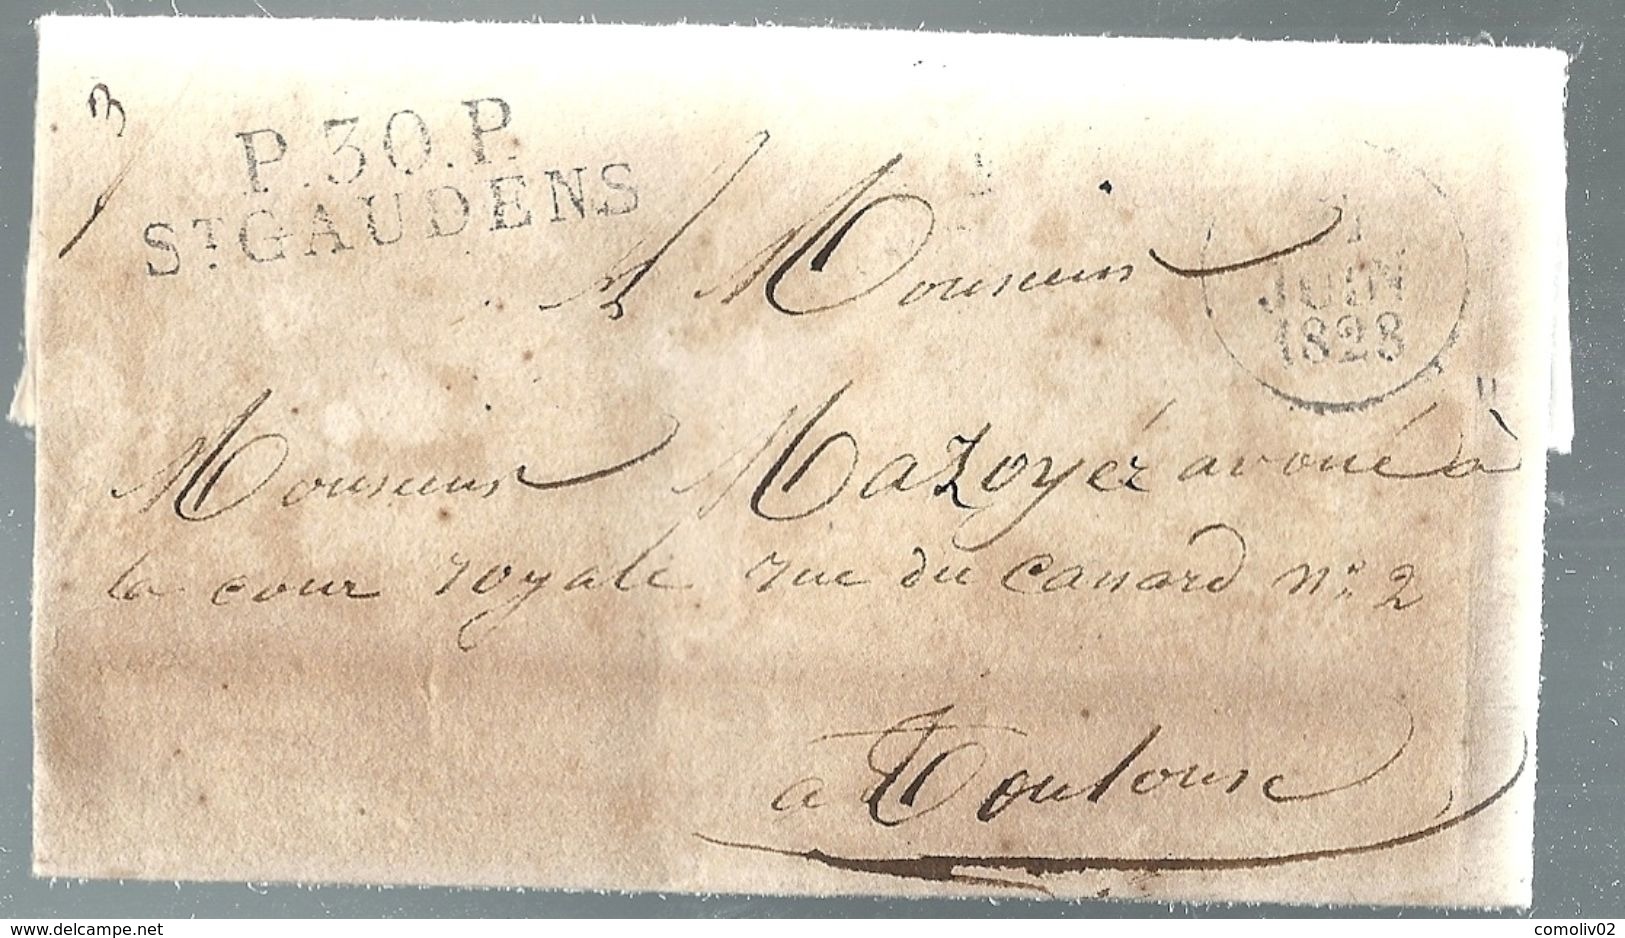 3
P.30.P.
ST GAUDENS
Monsieur
1
JUIN
1828
Monsieur Mazoyér avoué à
la cour royale rue du Canard n° 2
à Toulouse
delcampe.net
comoliv02